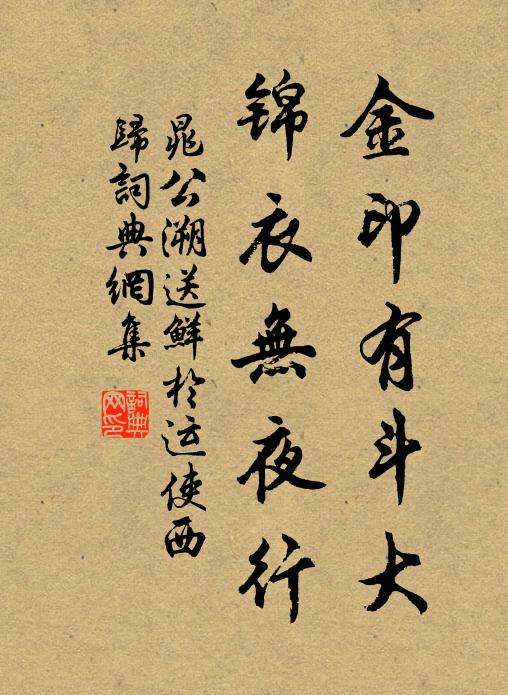 金印有斗大
锦衣無夜行
晁公溯送鮮於运使西
歸詞典網集
詞典
网印